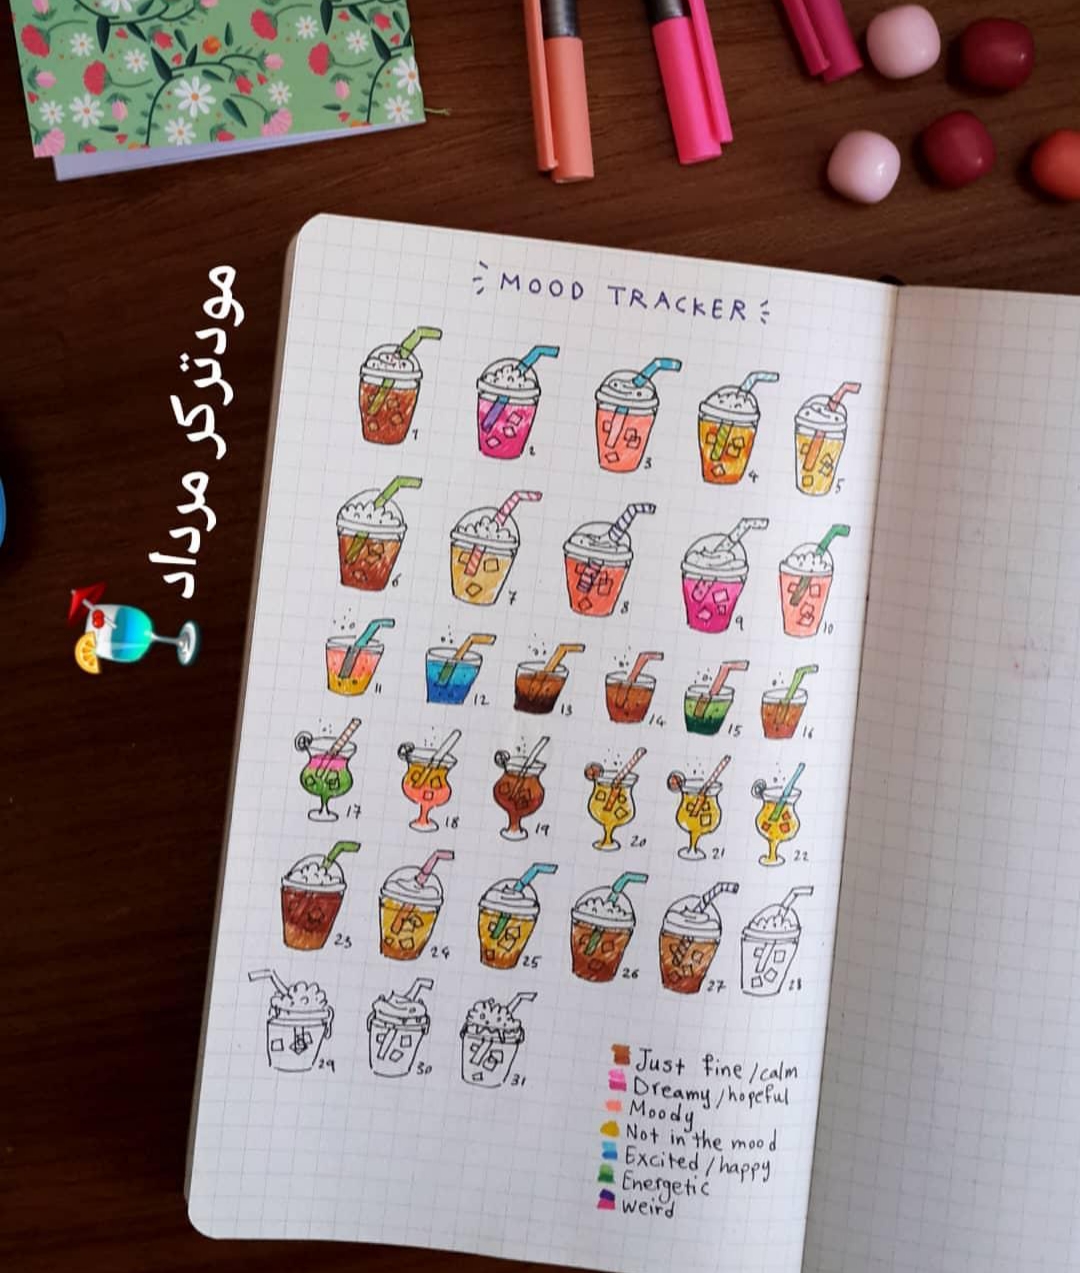 MOOD TRACKER
مودترکر مرداد
1 2 3 4 5
6 7 8 9 10
11 12 13 14 15 16
17 18 19 20 21 22
23 24 25 26 27 28
29 30 31
Just fine/calm
Dreamy/hopeful
Moody
Not in the mood
Excited/happy
Energetic
Weird